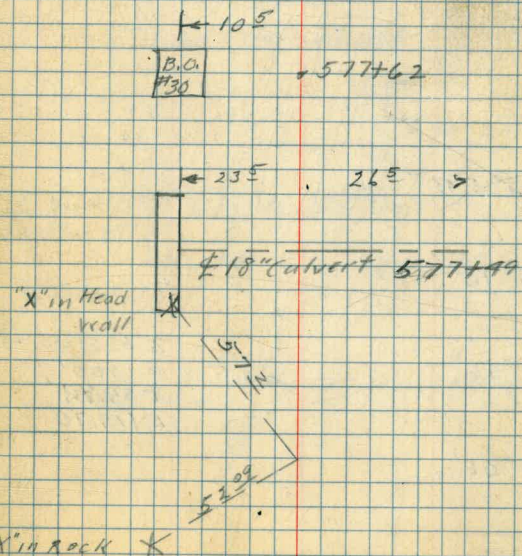 10 5
B.O.
#30
577+62
23 5 26 5
℄ 18" Culvert 577+44
"X" in Head
wall
57
52 09
"X" in Rock X